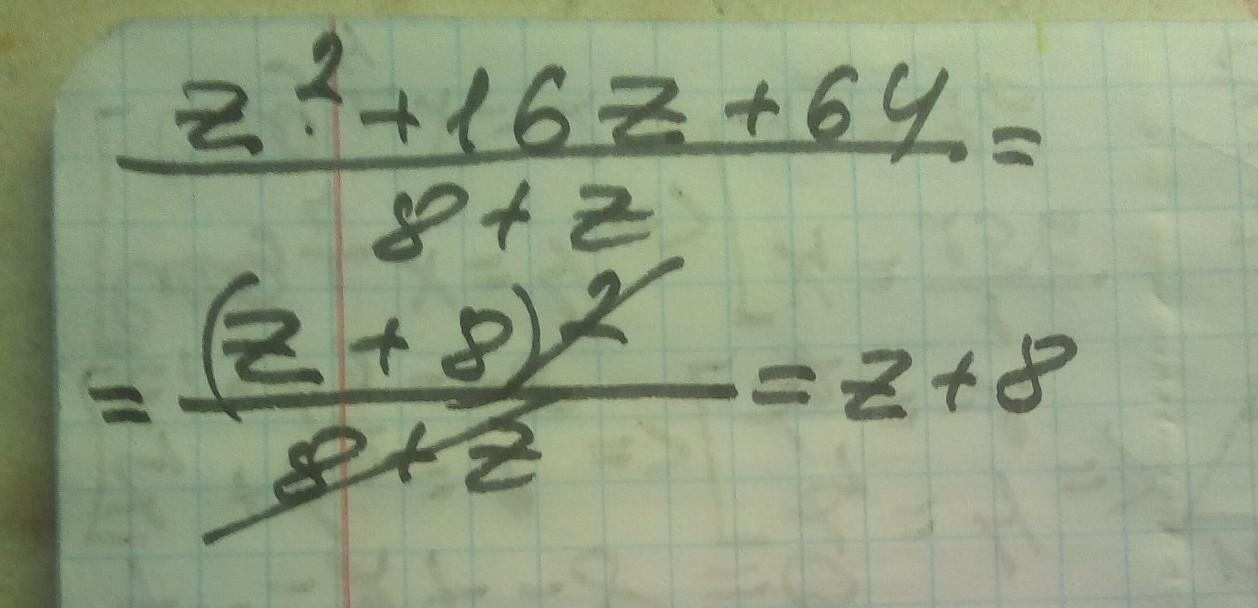 z² + 16z + 64 =
8 + z
= (z + 8)² = z + 8
8 + z